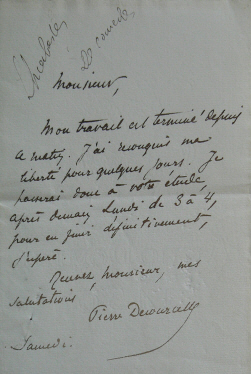 Monsieur,
Mon travail est terminé depuis
ce matin. J'ai reconquis ma
liberté pour quelques jours. Je
passerai donc à votre étude,
après demain Lundi de 3 à 4,
pour en finir définitivement,
j'espère.
Recevez, Monsieur, mes
salutations,
Pierre Decourcelle
Samedi.